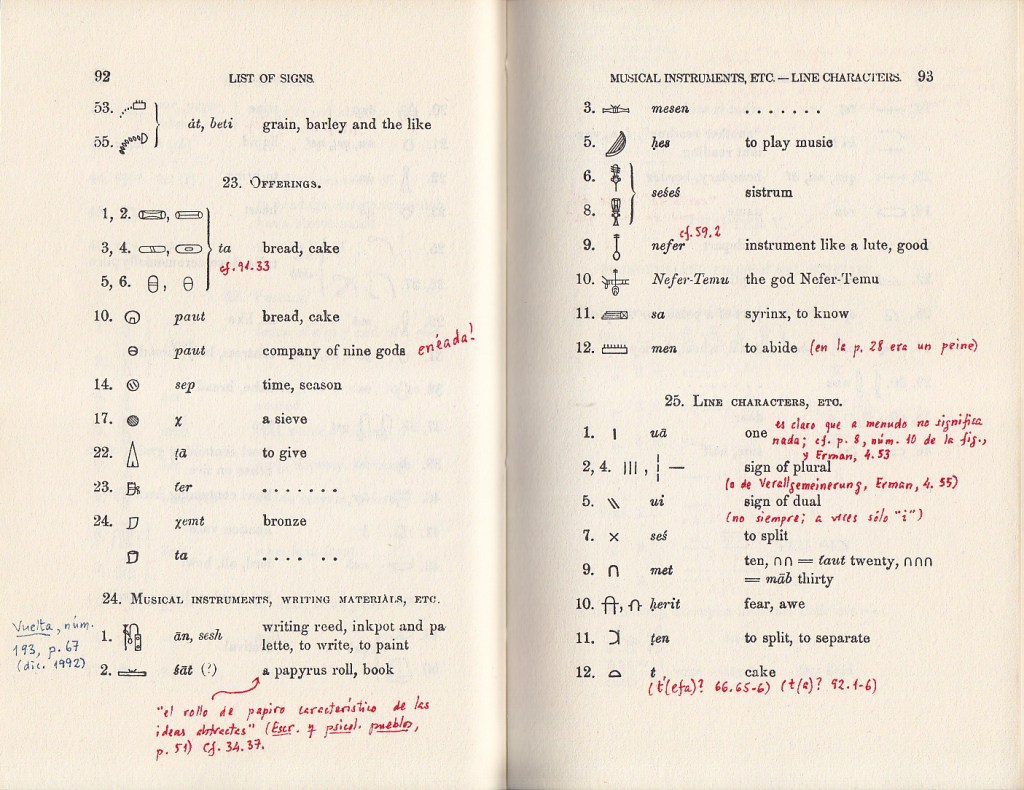 92 LIST OF SIGNS.
53.
55.
åt, beti grain, barley and the like
23. OFFERINGS.
1, 2.
3, 4. ta bread, cake
cf. 91.33
5, 6.
10. paut bread, cake
paut company of nine gods enéada!
14. sep time, season
17. χ a sieve
22. ṭā to give
23. ter . . . . . . .
24. χemt bronze
ta . . . . . . .
24. MUSICAL INSTRUMENTS, WRITING MATERIALS, ETC.
Vuelta, núm.
193, p. 67
(dic. 1992)
1. ān, sesh writing reed, inkpot and pa
lette, to write, to paint
2. śāt (?) a papyrus roll, book
"el rollo de papiro característico de las
ideas abstractas" (Escr. y psicol. pueblos,
p. 51) Cf. 34.37.
MUSICAL INSTRUMENTS, ETC. — LINE CHARACTERS. 93
3. mesen . . . . . . .
5. ḥes to play music
6.
seśeś sistrum
8.
cf. 59.2
9. nefer instrument like a lute, good
10. Nefer-Temu the god Nefer-Temu
11. sa syrinx, to know
12. men to abide (en la p. 28 era un peine)
25. LINE CHARACTERS, ETC.
1. uā one es claro que a menudo no significa
nada; cf. p. 8, núm. 10 de la fig.,
y Erman, 4.53
2, 4. sign of plural
(o de Verallgemeinerung, Erman, 4.55)
5. ui sign of dual
(no siempre; a veces sólo "i")
7. seś to split
9. met ten, ∩∩ = taut twenty, ∩∩∩
= māb thirty
10. ḥerit fear, awe
11. ṭen to split, to separate
12. t cake
(t(efa)? 66.65-6) (t(a)? 92.1-6)